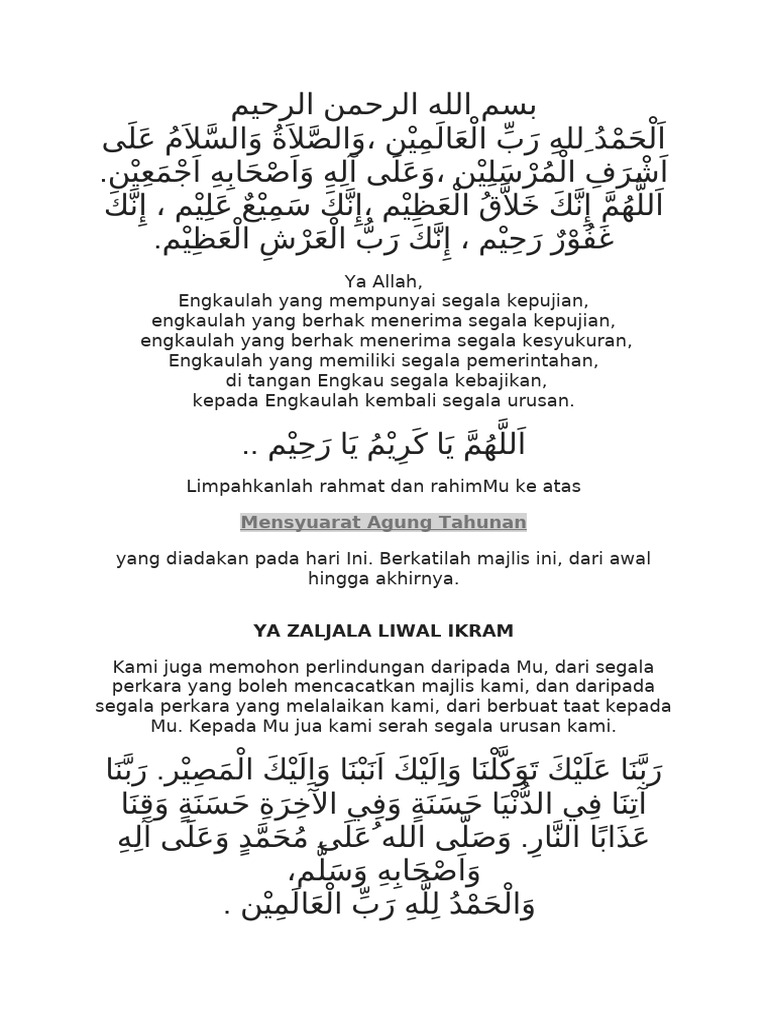 بسم الله الرحمن الرحيم
اَلْحَمْدُ ِللهِ رَبِّ الْعَالَمِيْن ،وَالصَّلاَةُ وَالسَّلاَمُ عَلَى
اَشْرَفِ الْمُرْسَلِيْن ،وَعَلَى آلِهِ وَاَصْحَابِهِ اَجْمَعِيْن.
اَللَّهُمَّ إِنَّكَ خَلاَّقُ الْعَظِيْم ،إِنَّكَ سَمِيْعٌ عَلِيْم ، إِنَّكَ
غَفُوْرٌ رَحِيْم ، إِنَّكَ رَبُّ الْعَرْشِ الْعَظِيْم.
Ya Allah,
Engkaulah yang mempunyai segala kepujian,
engkaulah yang berhak menerima segala kepujian,
engkaulah yang berhak menerima segala kesyukuran,
Engkaulah yang memiliki segala pemerintahan,
di tangan Engkau segala kebajikan,
kepada Engkaulah kembali segala urusan.
اَللَّهُمَّ يَا كَرِيْمُ يَا رَحِيْم ..
Limpahkanlah rahmat dan rahimMu ke atas
Mensyuarat Agung Tahunan
yang diadakan pada hari Ini. Berkatilah majlis ini, dari awal
hingga akhirnya.
YA ZALJALA LIWAL IKRAM
Kami juga memohon perlindungan daripada Mu, dari segala
perkara yang boleh mencacatkan majlis kami, dan daripada
segala perkara yang melalaikan kami, dari berbuat taat kepada
Mu. Kepada Mu jua kami serah segala urusan kami.
رَبَّنَا عَلَيْكَ تَوَكَّلْنَا وَاِلَيْكَ اَنَبْنَا وَاِلَيْكَ الْمَصِيْر. رَبَّنَا
آتِنَا فِي الدُّنْيَا حَسَنَةٍ وَفِي الآَخِرَةِ حَسَنَةٍ وَقِنَا
عَذَابًا النَّارِ. وَصَلَّى الله ُعَلَى مُحَمَّدٍ وَعَلَى آلِهِ
وَاَصْحَابِهِ وَسَلَّم،
وَالْحَمْدُ لِلَّهِ رَبِّ الْعَالَمِيْن .